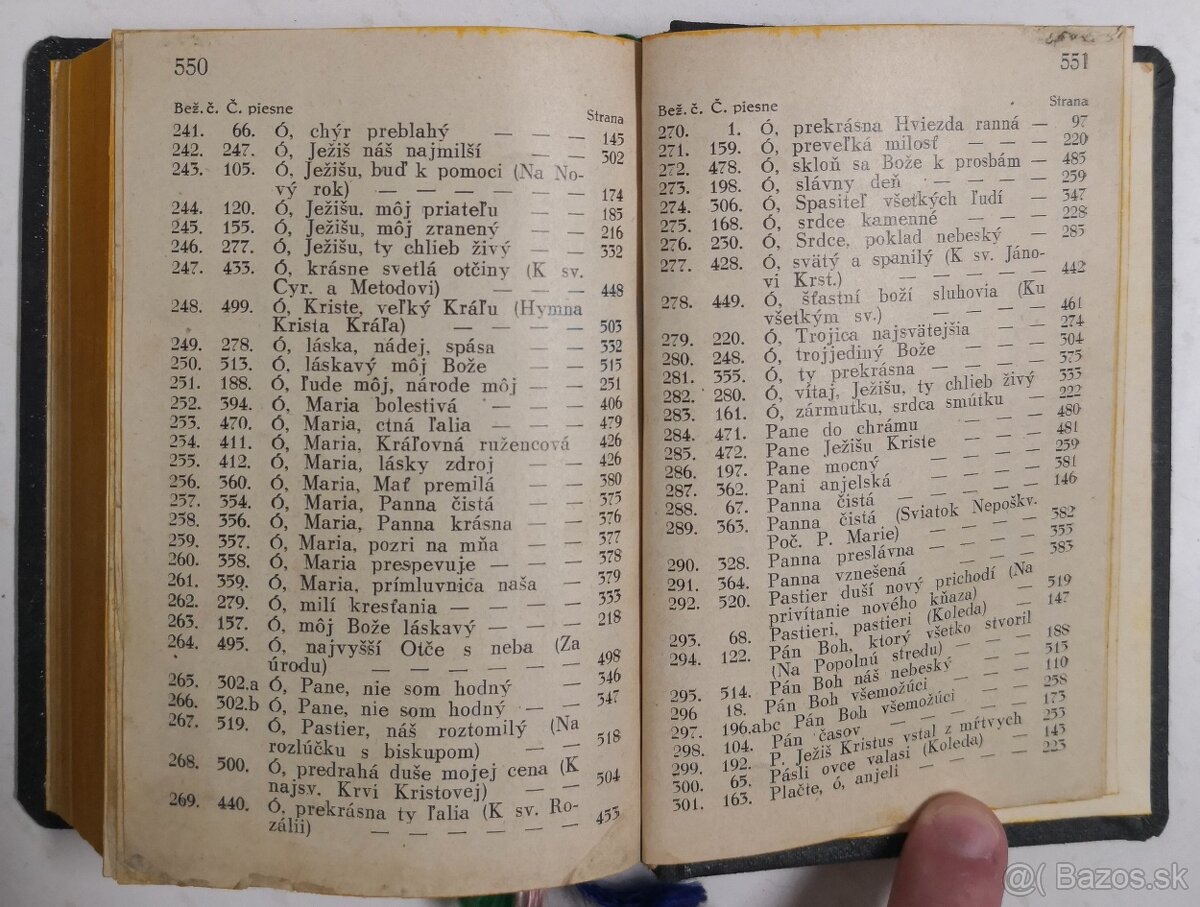 550
Bež. č. Č. piesne Strana
241. 66. Ó, chýr preblahý — — — 145
242. 247. Ó, Ježiš náš najmilší — — 302
243. 105. Ó, Ježišu, buď k pomoci (Na No-
vý rok) — — — — — — 174
244. 120. Ó, Ježišu, môj priateľu — — 185
245. 155. Ó, Ježišu, môj zranený — — 216
246. 277. Ó, Ježišu, ty chlieb živý — — 332
247. 433. Ó, krásne svetlá otčiny (K sv.
Cyr. a Metodovi) — — — — 448
248. 499. Ó, Kriste, veľký Kráľu (Hymna
Krista Kráľa) — — — — 503
249. 278. Ó, láska, nádej, spása — — 332
250. 513. Ó, láskavý môj Bože — — 515
251. 188. Ó, ľude môj, národe môj — — 251
252. 394. Ó, Maria bolestivá — — — 406
253. 470. Ó, Maria, ctná ľalia — — — 479
254. 411. Ó, Maria, Kráľovná ružencová 426
255. 412. Ó, Maria, lásky zdroj — — 426
256. 360. Ó, Maria, Mať premilá — — 380
257. 354. Ó, Maria, Panna čistá — — 375
258. 356. Ó, Maria, Panna krásna — — 376
259. 357. Ó, Maria, pozri na mňa — — 377
260. 358. Ó, Maria prespevuje — — — 378
261. 359. Ó, Maria, prímluvnica naša — 379
262. 279. Ó, milí kresťania — — — — 333
263. 157. Ó, môj Bože láskavý — — — 218
264. 495. Ó, najvyšší Otče s neba (Za
úrodu) — — — — — — 498
265. 302.a Ó, Pane, nie som hodný — 346
266. 302.b Ó, Pane, nie som hodný — — 347
267. 519. Ó, Pastier, náš roztomilý (Na
rozlúčku s biskupom) — — 518
268. 500. Ó, predrahá duše mojej cena (K
najsv. Krvi Kristovej) — — 504
269. 440. Ó, prekrásna ty ľalia (K sv. Ro-
zálii) — — — — — — 453
551
Bež. č. Č. piesne Strana
270. 1. Ó, prekrásna Hviezda ranná — 97
271. 159. Ó, preveľká milosť — — — 220
272. 478. Ó, skloň sa Bože k prosbám — 485
273. 198. Ó, slávny deň — — — — 259
274. 306. Ó, Spasiteľ všetkých ľudí — 347
275. 168. Ó, srdce kamenné — — — 228
276. 230. Ó, Srdce, poklad nebeský — — 285
277. 428. Ó, svätý a spanilý (K sv. Jáno-
vi Krst.) — — — — — 442
278. 449. Ó, šťastní boží sluhovia (Ku
všetkým sv.) — — — — 461
279. 220. Ó, Trojica najsvätejšia — — 274
280. 248. Ó, trojjediný Bože — — — 304
281. 355. Ó, ty prekrásna — — — — 375
282. 280. Ó, vítaj, Ježišu, ty chlieb živý 333
283. 161. Ó, zármutku, srdca smútku — 222
284. 471. Pane do chrámu — — — 480
285. 472. Pane Ježišu Kriste — — — 481
286. 197. Pane mocný — — — — 259
287. 362. Pani anjelská — — — — 381
288. 67. Panna čistá — — — — — 146
289. 363. Panna čistá (Sviatok Nepoškv.
Poč. P. Marie) — — — — 382
290. 328. Panna preslávna — — — — 355
291. 364. Panna vznešená — — — — 383
292. 520. Pastier duší nový prichodí (Na
privítanie nového kňaza) — 519
293. 68. Pastieri, pastieri (Koleda) — 147
294. 122. Pán Boh, ktorý všetko stvoril
(Na Popolnú stredu) — — 188
295. 514. Pán Boh náš nebeský — — 515
296 18. Pán Boh všemožúci — — — 110
297. 196.abc Pán Boh všemožúci — — 258
298. 104. Pán časov — — — — — 173
299. 192. P. Ježiš Kristus vstal z mŕtvych 255
300. 65. Pásli ovce valasi (Koleda) — 145
301. 163. Plačte, ó, anjeli — — — — 223
@( Bazos.sk